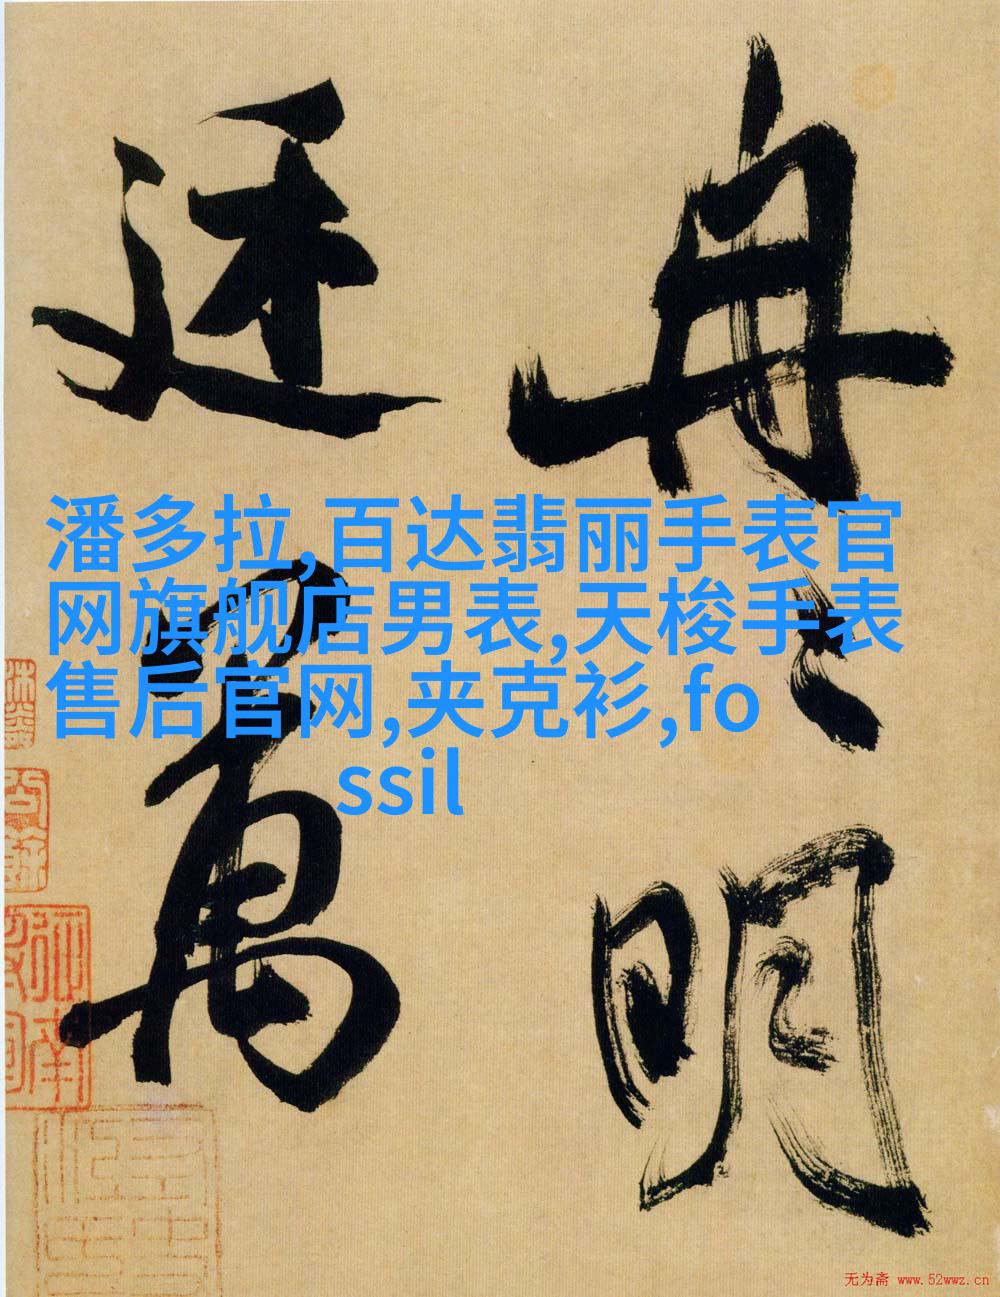 冉々明
廷萬
潘多拉,百达翡丽手表官
网旗舰店男表,天梭手表
售后官网,夹克衫,fo
ssil
无为斋 www.52wwz.cn